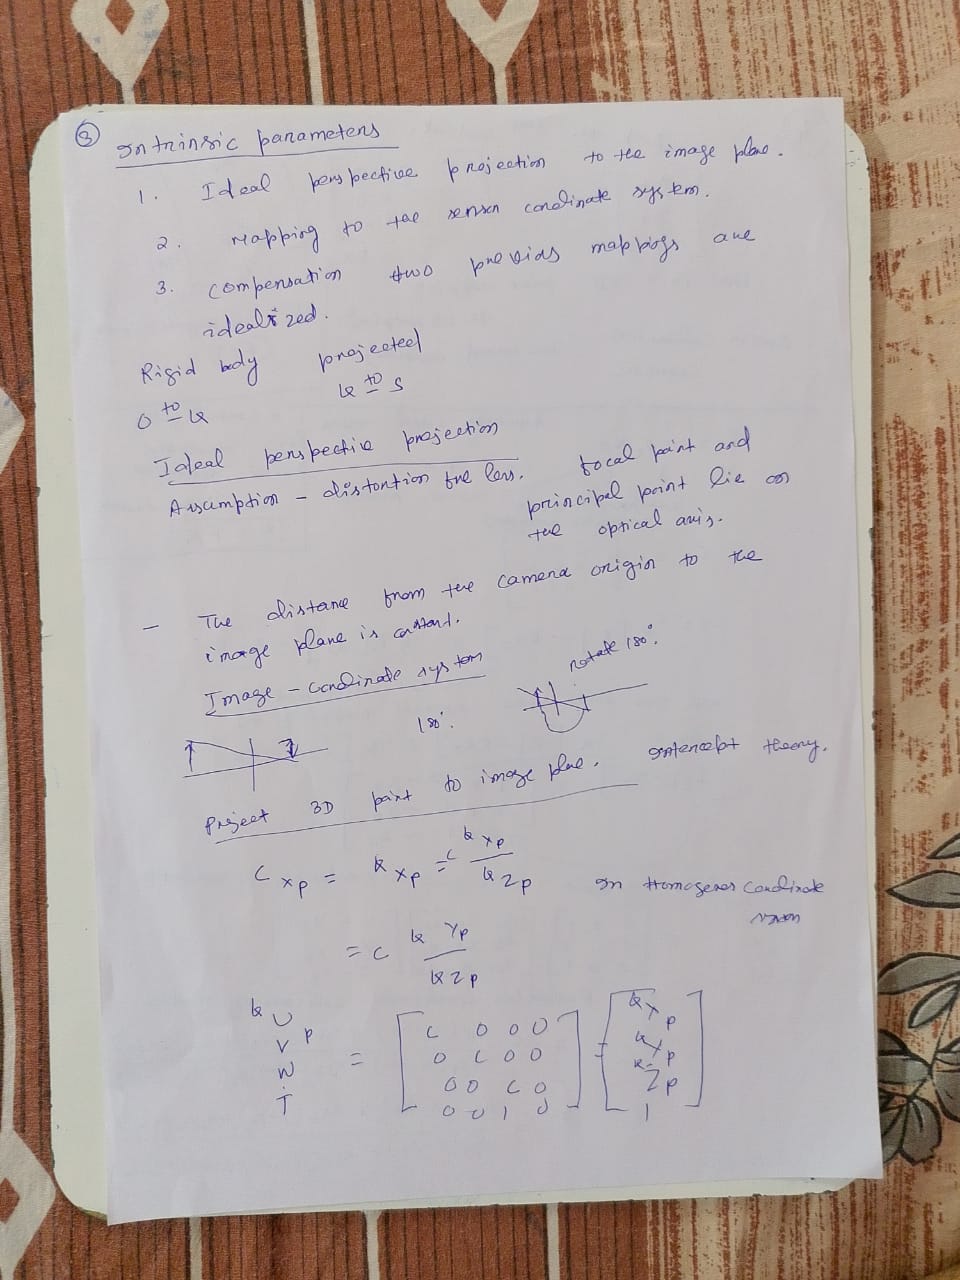 3 Intrinsic parameters
1. Ideal perspective projection to the image plane.
2. Mapping to the sensor coordinate system.
3. compensation two previous mappings are
idealized.
Rigid body projected
O to k k to s
Ideal perspective projection
Assumption - distortion free lens. focal point and
principal point lie on
the optical axis.
- The distance from the camera origin to the
image plane is constant.
Image - coordinate system
rotate 180°.
180°.
Project 3D point to image plane. Intercept theory.
c xp = k xp = c k xp / k zp In Homogenous Coordinate
= c k Yp / k zp
k U p
V
W
T
= [ c 0 0 0
0 c 0 0
0 0 c 0
0 0 1 0 ]
[ k X p
k Y p
k Z p
1 ]